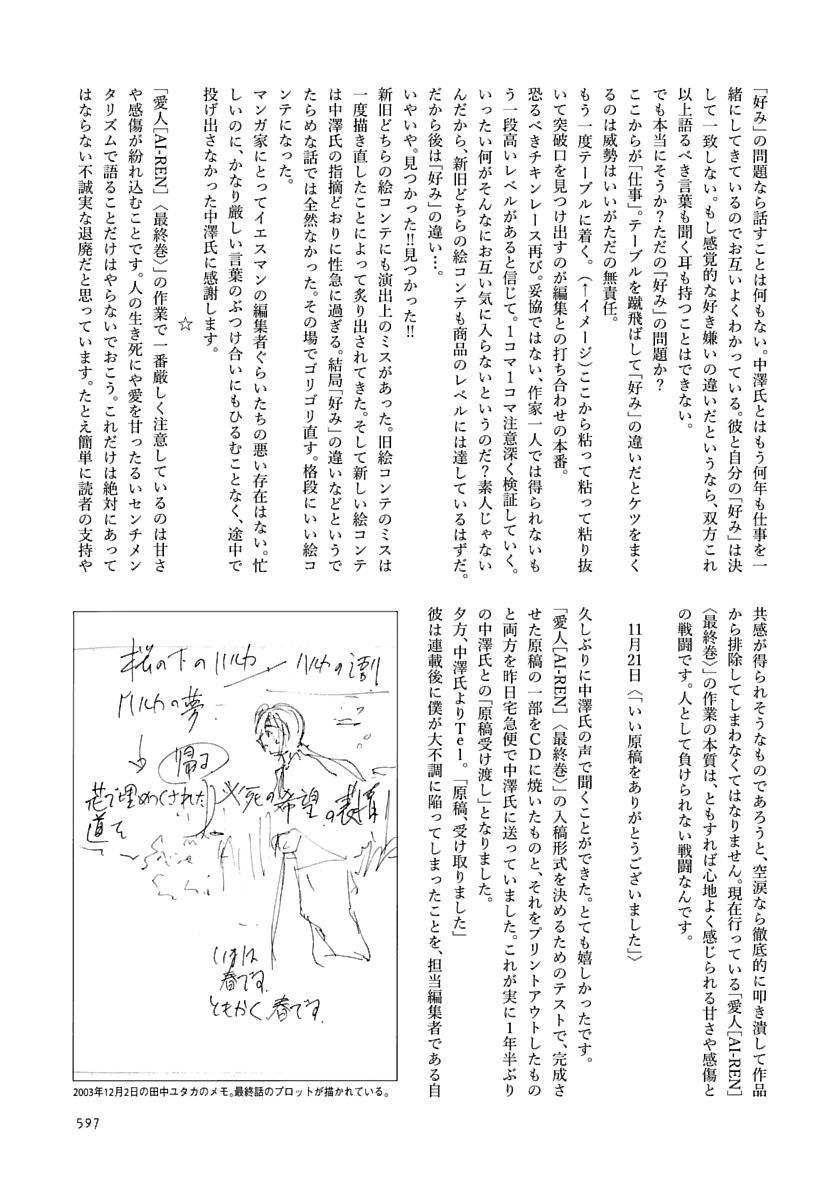 「好み」の問題なら話すことは何もない。中澤氏とはもう何年も仕事を一
緒にしてきているのでお互いよくわかっている。彼と自分の「好み」は決
して一致しない。もし感覚的な好き嫌いの違いだというなら、双方これ
以上語るべき言葉も聞く耳も持つことはできない。
でも本当にそうか？ただの「好み」の問題か？
ここからが「仕事」。テーブルを蹴飛ばして「好み」の違いだとケツをまく
るのは威勢はいいがただの無責任。
もう一度テーブルに着く。（↑イメージ）ここから粘って粘って粘り抜
いて突破口を見つけ出すのが編集との打ち合わせの本番。
恐るべきチキンレース再び。妥協ではない、作家一人では得られないも
う一段高いレベルがあると信じて。1コマ1コマ注意深く検証していく。
いったい何がそんなにお互い気に入らないというのだ？素人じゃない
んだから、新旧どちらの絵コンテも商品のレベルには達しているはずだ。
だから後は「好み」の違い…。
いやいや。見つかった!!見つかった!!
新旧どちらの絵コンテにも演出上のミスがあった。旧絵コンテのミスは
一度描き直したことによって炙り出されてきた。そして新しい絵コンテ
は中澤氏の指摘どおりに性急に過ぎる。結局「好み」の違いなどというで
たらめな話では全然なかった。その場でゴリゴリ直す。格段にいい絵コ
ンテになった。
マンガ家にとってイエスマンの編集者ぐらいたちの悪い存在はない。忙
しいのに、かなり厳しい言葉のぶつけ合いにもひるむことなく、途中で
投げ出さなかった中澤氏に感謝します。
☆
「愛人[AI-REN]〈最終巻〉」の作業で一番厳しく注意しているのは甘さ
や感傷が紛れ込むことです。人の生き死にや愛を甘ったるいセンチメン
タリズムで語ることだけはやらないでおこう。これだけは絶対にあって
はならない不誠実な退廃だと思っています。たとえ簡単に読者の支持や
共感が得られそうなものであろうと、空涙なら徹底的に叩き潰して作品
から排除してしまわなくてはなりません。現在行っている「愛人[AI-REN]
〈最終巻〉」の作業の本質は、ともすれば心地よく感じられる甘さや感傷と
の戦闘です。人として負けられない戦闘なんです。
11月21日〈「いい原稿をありがとうございました」〉
久しぶりに中澤氏の声で聞くことができた。とても嬉しかったです。
「愛人[AI-REN]〈最終巻〉」の入稿形式を決めるためのテストで、完成さ
せた原稿の一部をCDに焼いたものと、それをプリントアウトしたもの
と両方を昨日宅急便で中澤氏に送っていました。これが実に1年半ぶり
の中澤氏との「原稿受け渡し」となりました。
夕方、中澤氏よりTel。「原稿、受け取りました」
彼は連載後に僕が大不調に陥ってしまったことを、担当編集者である自
桜の下のハルカ
ハルカの夢
帰る
花で埋めつくされた
道を
必死の希望の表情
いまは
春です
ともかく春です
2003年12月2日の田中ユタカのメモ。最終話のプロットが描かれている。
597